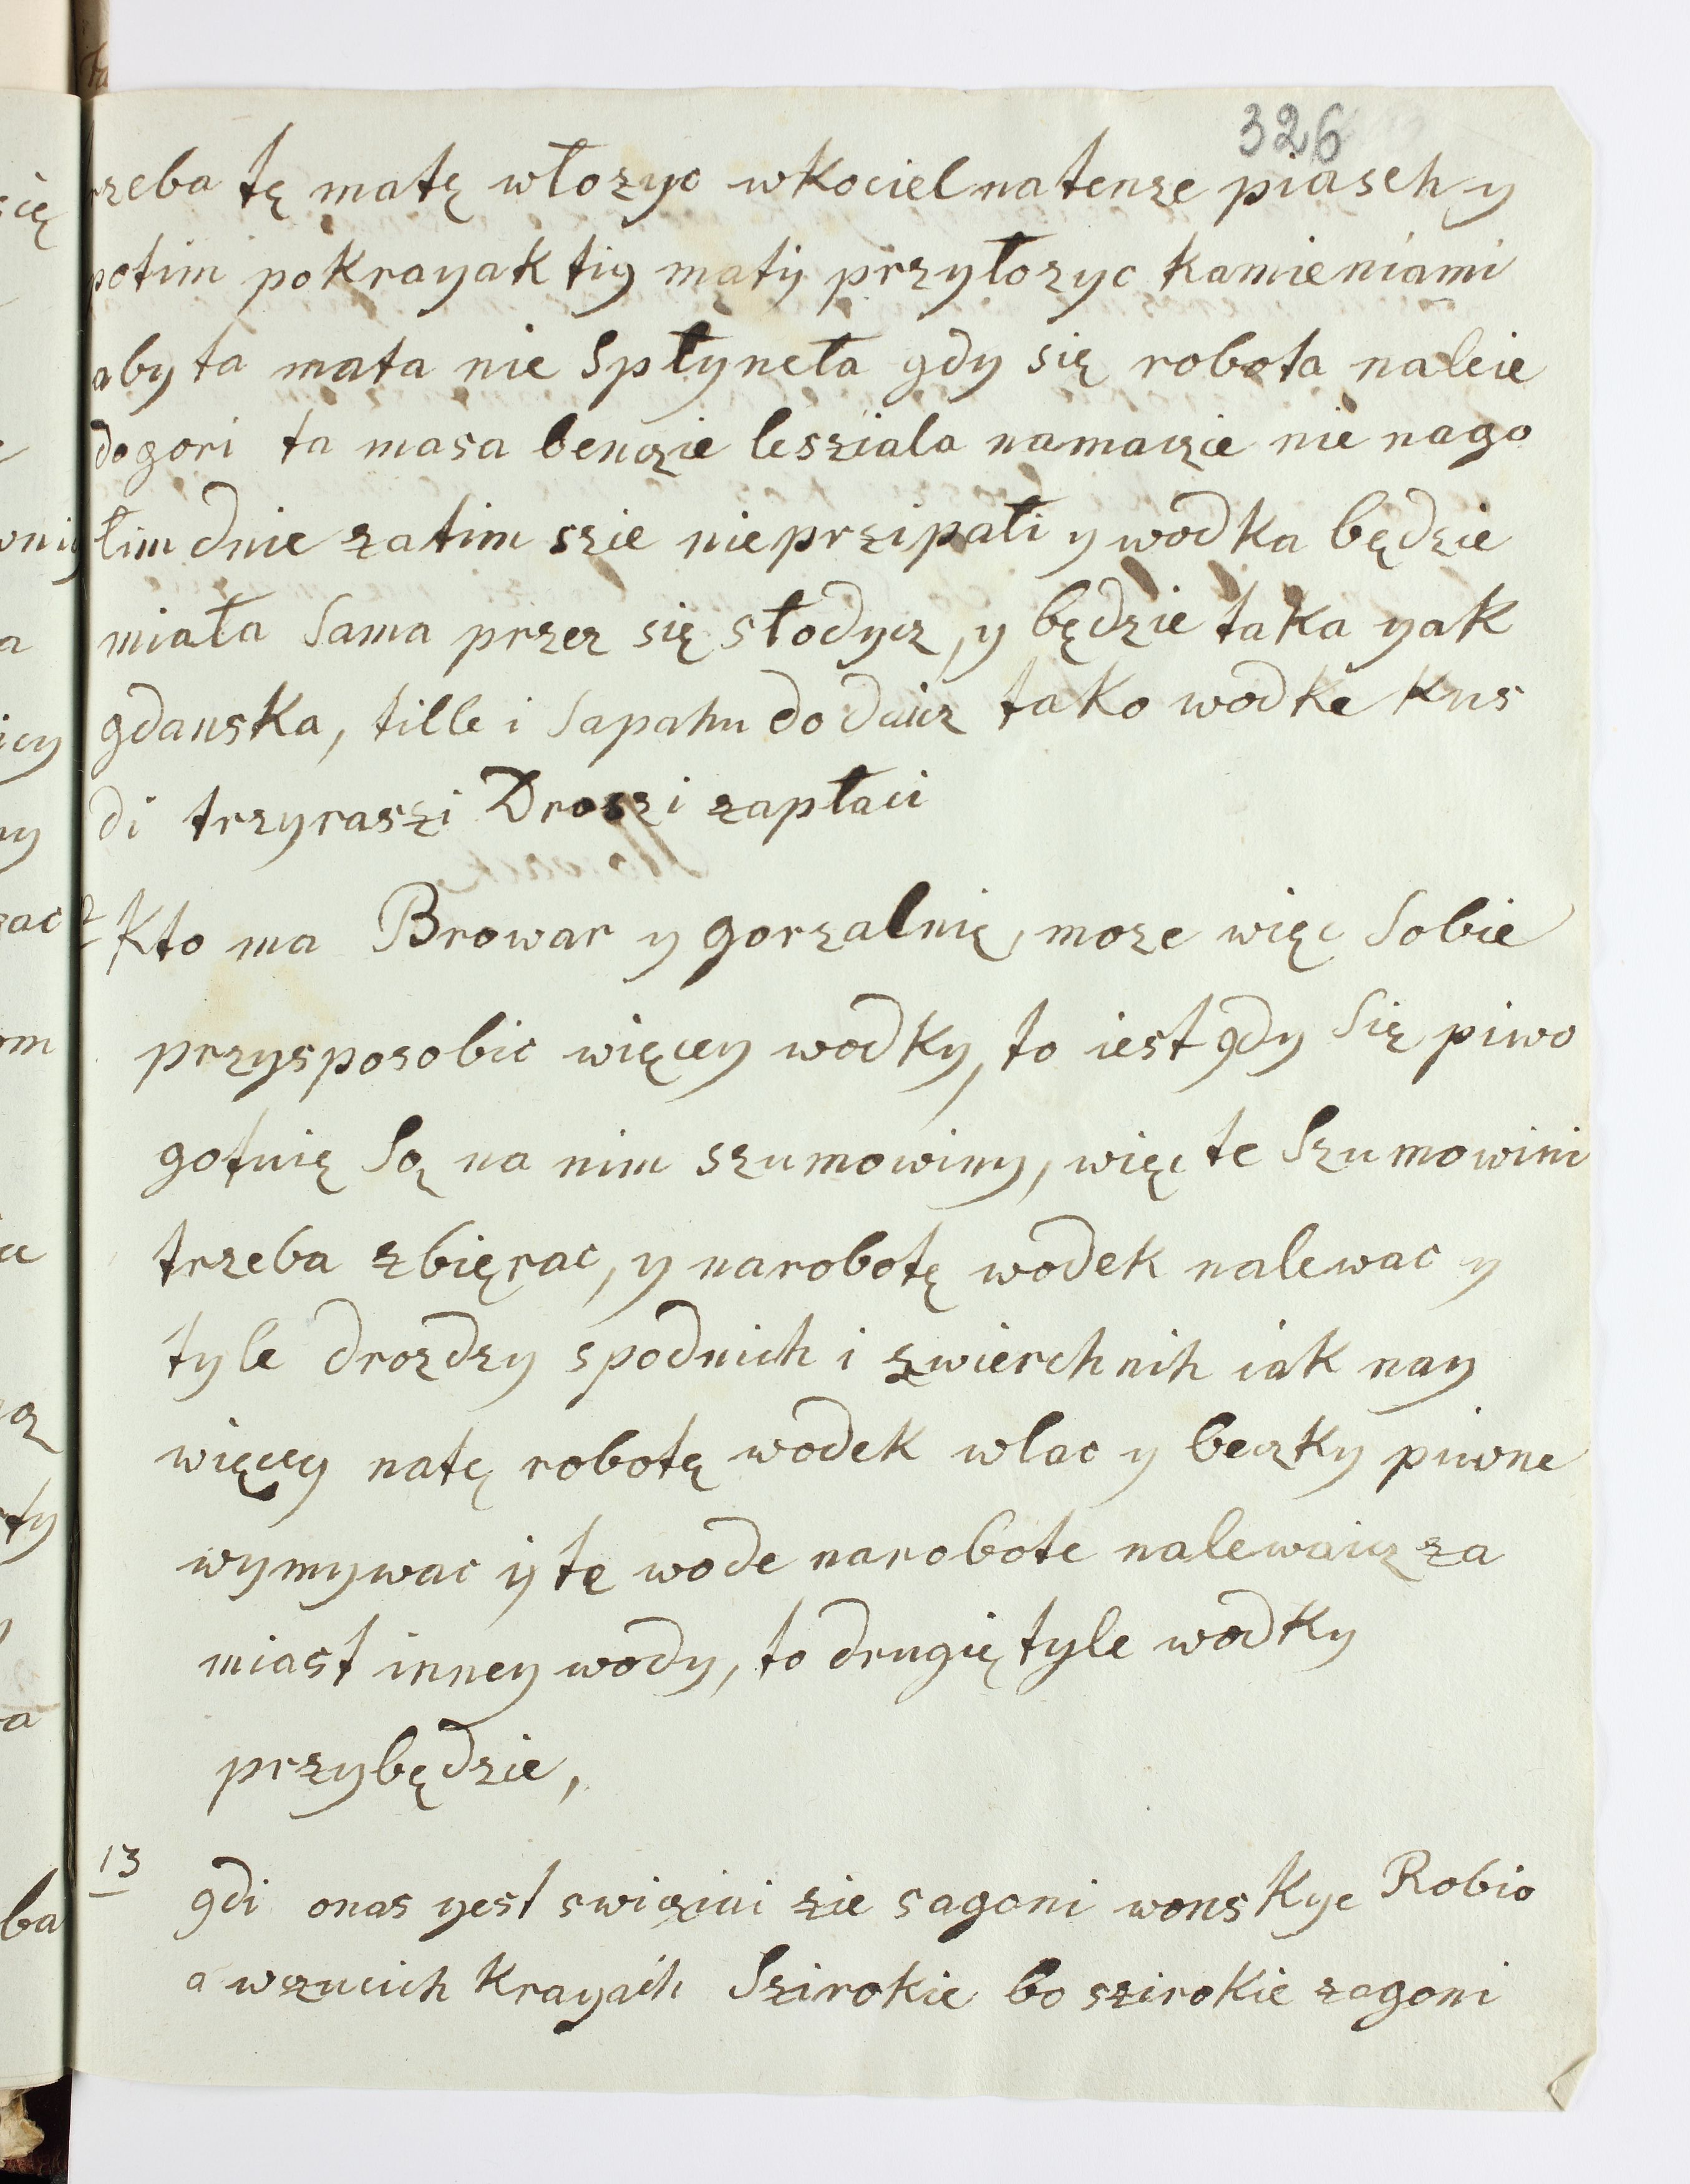 326
rzeba tę matę włozyc wkociel natenze piasek y
potim pokrayak tiy matÿ przyłozyc kamieniami
aby ta mata nie Spłyneła gdy się robota naleie
do gori ta masa bendzie lesziala namacie nie nago
łim dnie zatim szie nieprzipałi y wodka będzie
miała Sama przez się słodycz, y będzie taka yak
gdanska, tille i Sapahu do daicz tako wodke kus
di trzyraszi Droszi zapłaci
2 Kto ma Browar y gorzalnię, moze więc Sobie
przysposobic więcey wodky, to iest gdy Się piwo
gotuię Są na nim szumowiny, więc te Szumowini
trzeba zbięrac, y narobotę wodek nalewac y
tyle drozdzy spodnich i zwierchnih iak nay
więcey natę robotę wodek wlac y beczky piwne
wymywac ÿ te wode narobote nalewaicz za
miast inney wody, to drugię tyle wodky
przybędzie,
13 gdi onas yest swiziai zie sagoni wonskye Robio
a wczucich krayach Szirokie bo szirokie zagoni